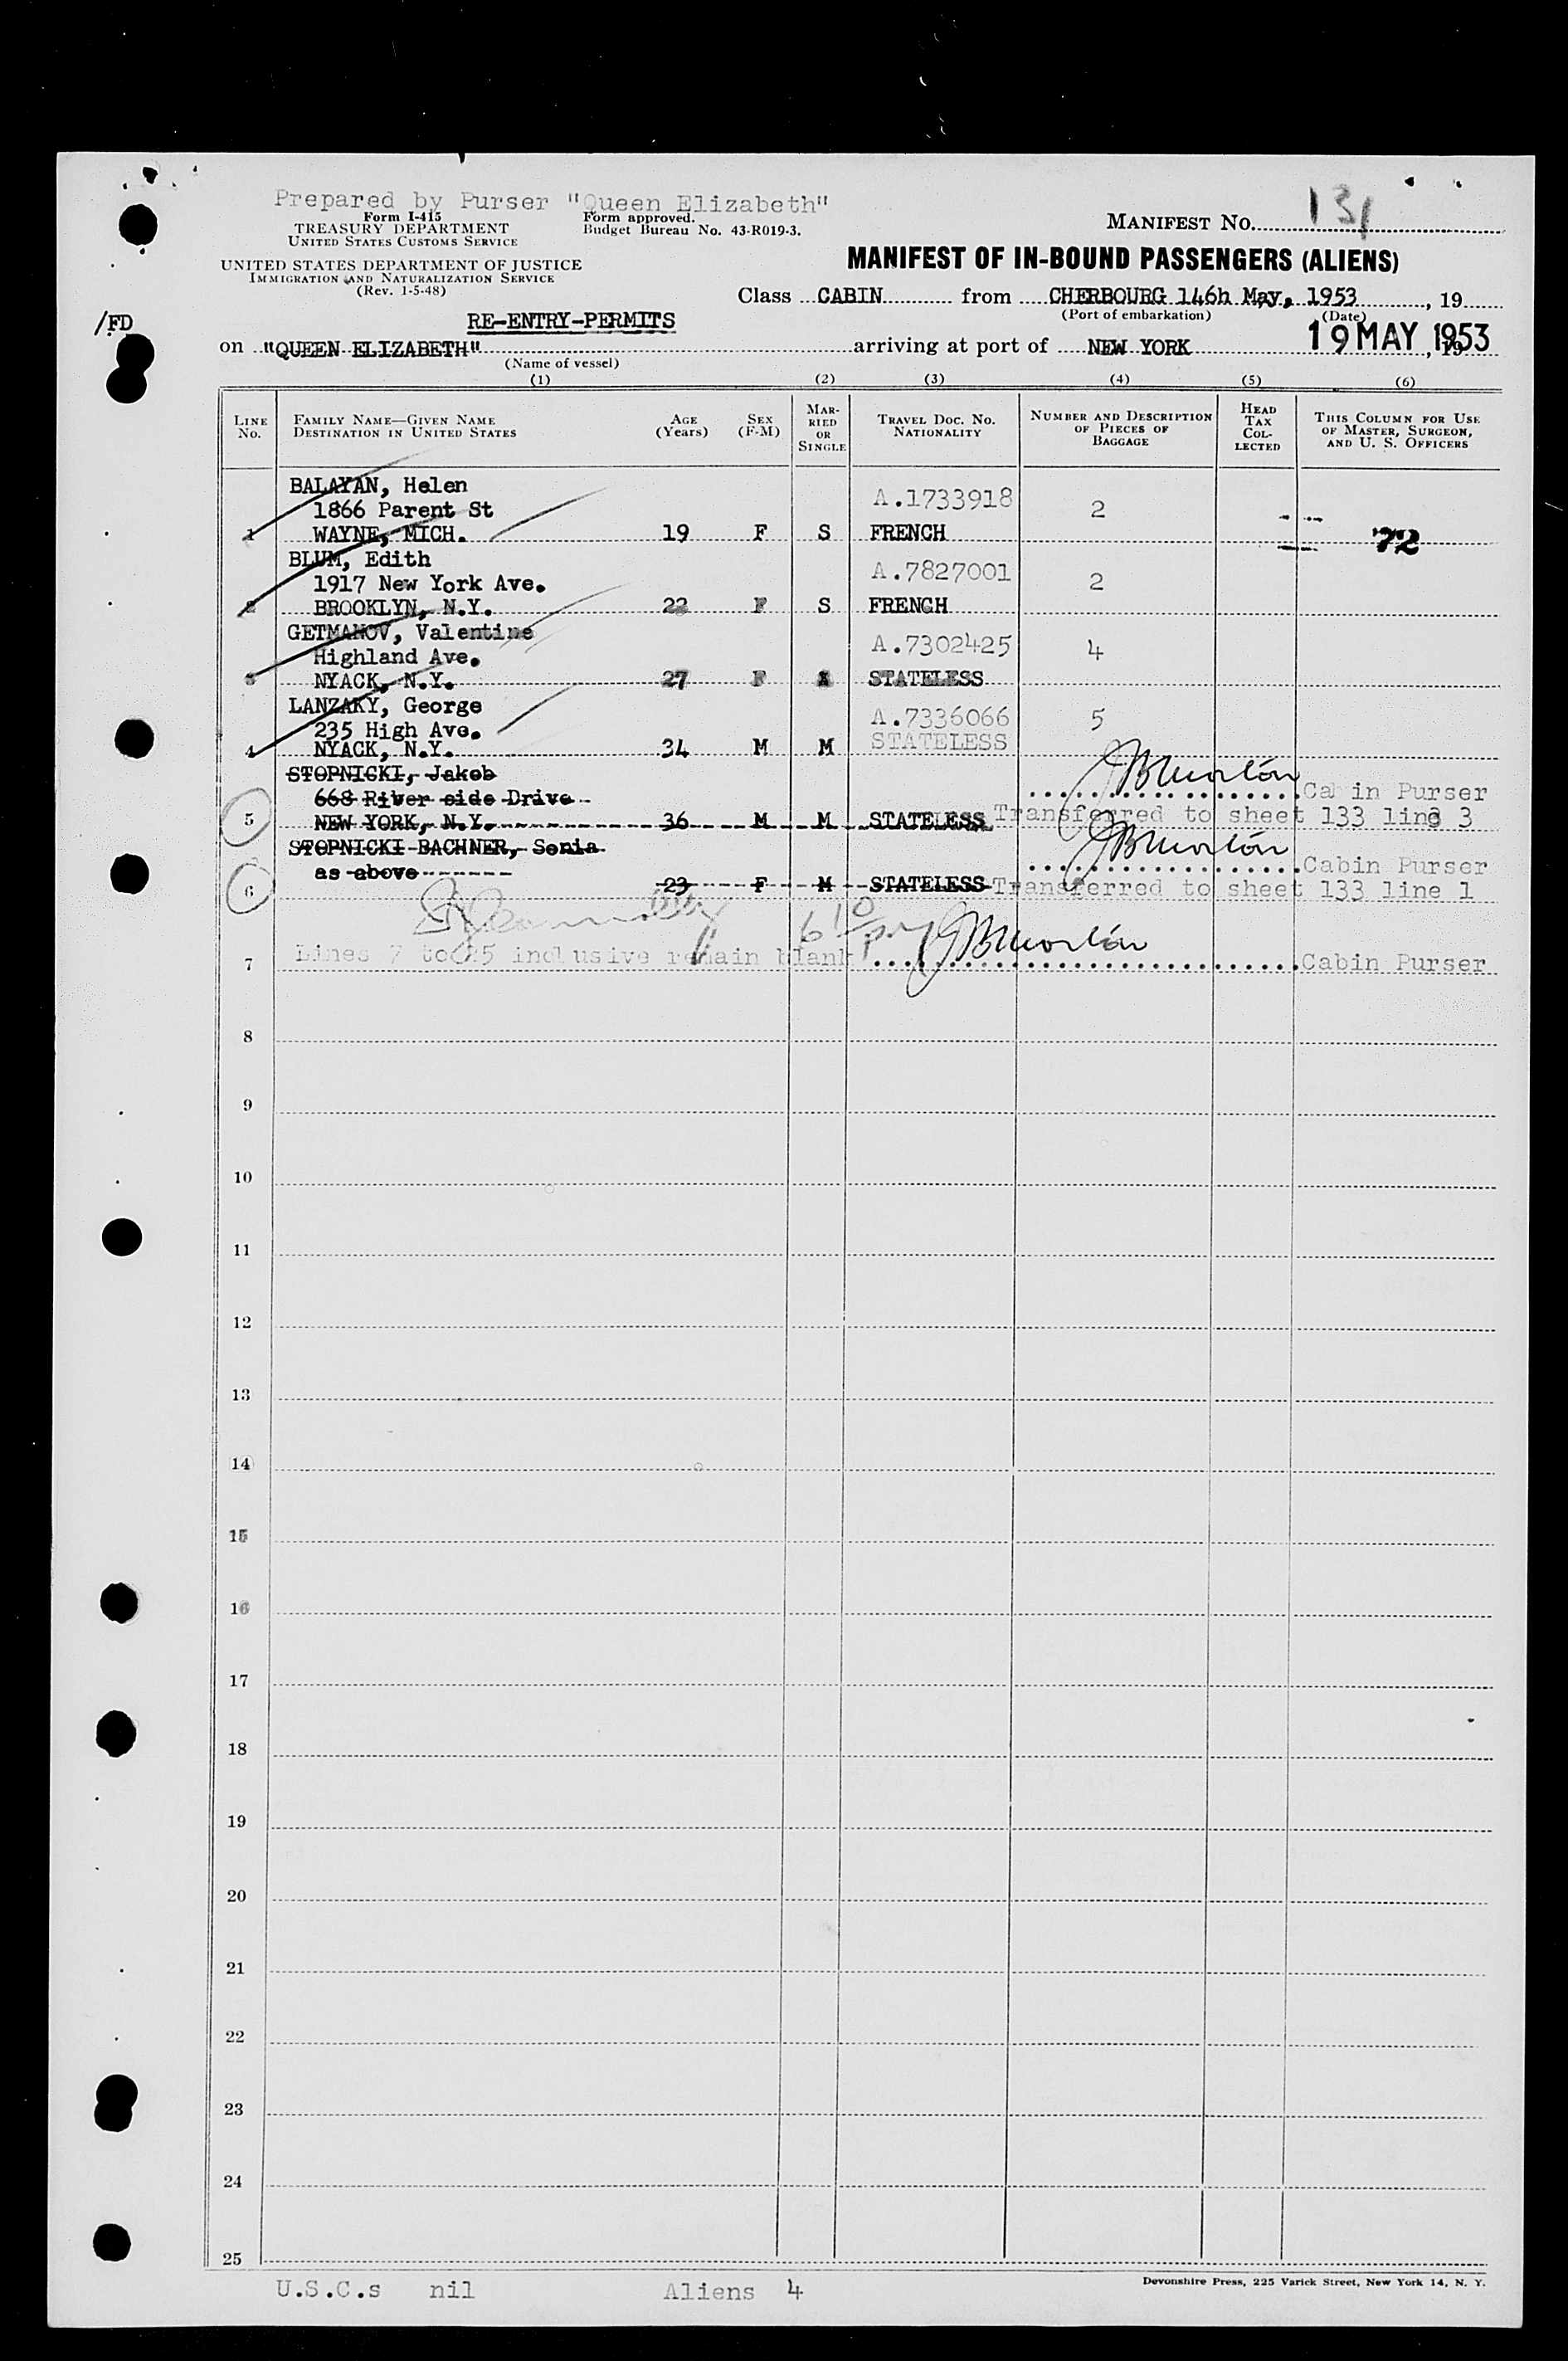 Prepared by Purser "Queen Elizabeth"
Form I-415
TREASURY DEPARTMENT
UNITED STATES CUSTOMS SERVICE
Form approved.
Budget Bureau No. 43-R019-3.
MANIFEST No. 131
UNITED STATES DEPARTMENT OF JUSTICE
IMMIGRATION AND NATURALIZATION SERVICE
(Rev. 1-5-48)
MANIFEST OF IN-BOUND PASSENGERS (ALIENS)
Class CABIN from CHERBOURG 146h May, 1953, 19
(Port of embarkation) (Date)
/FD
RE-ENTRY-PERMITS
on "QUEEN ELIZABETH" arriving at port of NEW YORK 19 MAY 1953, 19
(Name of vessel)
(1) (2) (3) (4) (5) (6)
LINE No. FAMILY NAME—GIVEN NAME DESTINATION IN UNITED STATES AGE (Years) SEX (F-M) MARRIED OR SINGLE TRAVEL DOC. No. NATIONALITY NUMBER AND DESCRIPTION OF PIECES OF BAGGAGE HEAD TAX COLLECTED THIS COLUMN FOR USE OF MASTER, SURGEON, AND U. S. OFFICERS
BALAYAN, Helen
1866 Parent St A.1733918 2
1 WAYNE, MICH. 19 F S FRENCH 72
BLUM, Edith
1917 New York Ave. A.7827001 2
2 BROOKLYN, N.Y. 22 F S FRENCH
GETMANOV, Valentine
Highland Ave. A.7302425 4
3 NYACK, N.Y. 27 F STATELESS
LANZAKY, George
235 High Ave. A.7336066 5
4 NYACK, N.Y. 34 M M STATELESS
STOPNICKI, Jakob
668 River side Drive Cabin Purser
5 NEW YORK, N.Y. 36 M M STATELESS Transferred to sheet 133 line 3
STOPNICKI-BACHNER, Sonia
as above Cabin Purser
6 23 F M STATELESS Transferred to sheet 133 line 1
7 Lines 7 to 25 inclusive remain blank Cabin Purser
8
9
10
11
12
13
14
15
16
17
18
19
20
21
22
23
24
25
U.S.C.s nil Aliens 4
Devonshire Press, 225 Varick Street, New York 14, N. Y.